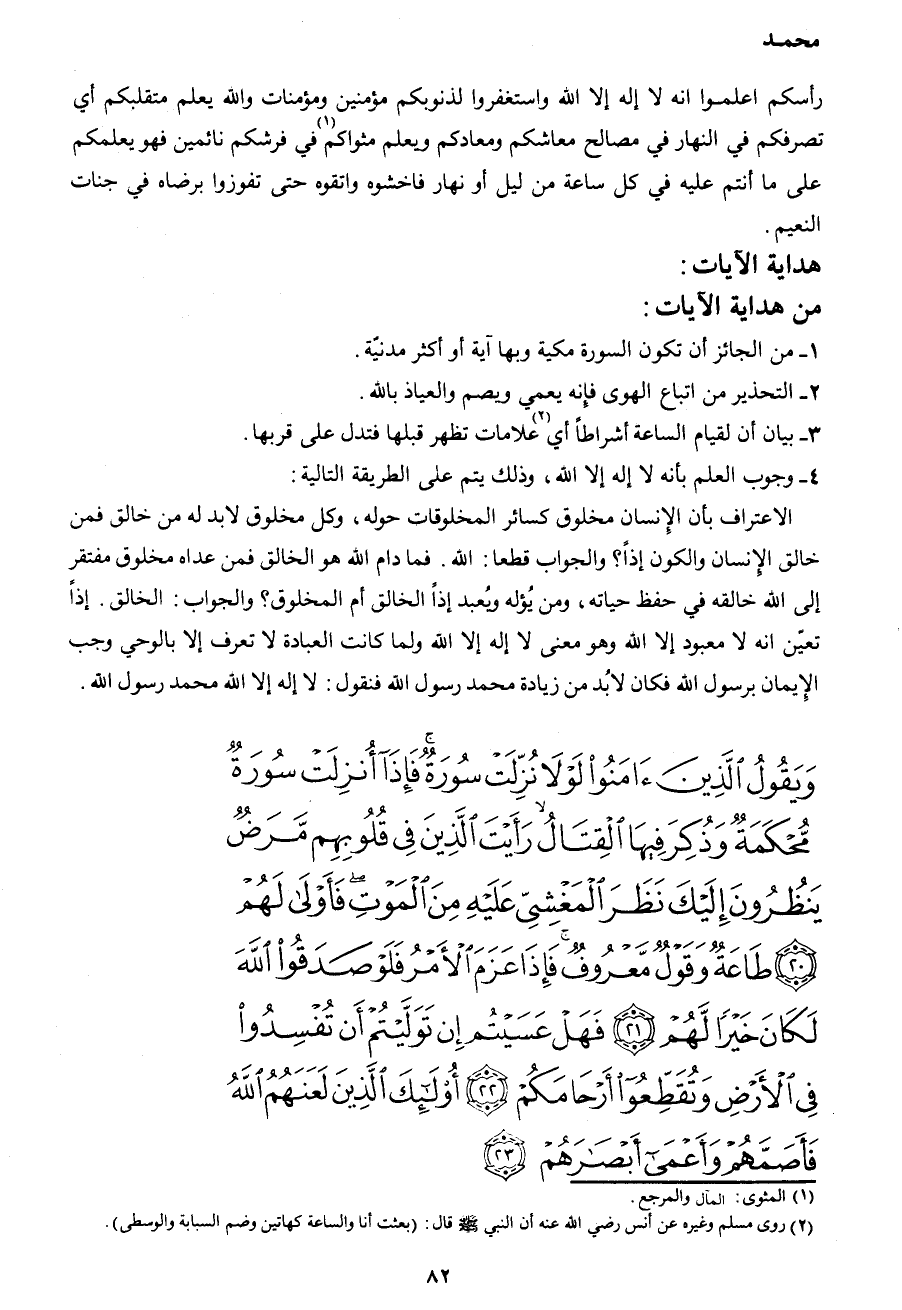 محمـد
رأسكم اعلمـوا انه لا إله إلا الله واستغفروا لذنوبكم مؤمنين ومؤمنات والله يعلم متقلبكم أي
تصرفكم في النهار في مصالح معاشكم ومعادكم ويعلم مثواكم(١) في فرشكم نائمين فهو يعلمكم
على ما أنتم عليه في كل ساعة من ليل أو نهار فاخشوه واتقوه حتى تفوزوا برضاه في جنات
النعيم .
هداية الآيات :
من هداية الآيات :
١ـ من الجائز أن تكون السورة مكية وبها آية أو أكثر مدنيّة .
٢ـ التحذير من اتباع الهوى فإنه يعمي ويصم والعياذ بالله .
٣ـ بيان أن لقيام الساعة أشراطاً أي(٢) علامات تظهر قبلها فتدل على قربها .
٤ـ وجوب العلم بأنه لا إله إلا الله ، وذلك يتم على الطريقة التالية :
الاعتراف بأن الإنسان مخلوق كسائر المخلوقات حوله ، وكل مخلوق لابد له من خالق فمن
خالق الإنسان والكون إذاً؟ والجواب قطعا : الله . فما دام الله هو الخالق فمن عداه مخلوق مفتقر
إلى الله خالقه في حفظ حياته ، ومن يُؤله ويُعبد إذاً الخالق أم المخلوق؟ والجواب : الخالق . إذاً
تعيّن انه لا معبود إلا الله وهو معنى لا إله إلا الله ولما كانت العبادة لا تعرف إلا بالوحي وجب
الإيمان برسول الله فكان لابُد من زيادة محمد رسول الله فنقول : لا إله إلا الله محمد رسول الله .
وَيَقُولُ ٱلَّذِينَ ءَامَنُوا۟ لَوْلَا نُزِّلَتْ سُورَةٌۖ فَإِذَآ أُنزِلَتْ سُورَةٌ
مُّحْكَمَةٌ وَذُكِرَ فِيهَا ٱلْقِتَالُۙ رَأَيْتَ ٱلَّذِينَ فِى قُلُوبِهِم مَّرَضٌ
يَنظُرُونَ إِلَيْكَ نَظَرَ ٱلْمَغْشِىِّ عَلَيْهِ مِنَ ٱلْمَوْتِۖ فَأَوْلَىٰ لَهُمْ
٢٠ طَاعَةٌ وَقَوْلٌ مَّعْرُوفٌۚ فَإِذَا عَزَمَ ٱلْأَمْرُ فَلَوْ صَدَقُوا۟ ٱللَّهَ
لَكَانَ خَيْرًا لَّهُمْ ٢١ فَهَلْ عَسَيْتُمْ إِن تَوَلَّيْتُمْ أَن تُفْسِدُوا۟
فِى ٱلْأَرْضِ وَتُقَطِّعُوٓا۟ أَرْحَامَكُمْ ٢٢ أُو۟لَٰٓئِكَ ٱلَّذِينَ لَعَنَهُمُ ٱللَّهُ
فَأَصَمَّهُمْ وَأَعْمَىٰٓ أَبْصَٰرَهُمْ ٢٣
(١) المثوى : المآل والمرجع .
(٢) روى مسلم وغيره عن أنس رضي الله عنه أن النبي ﷺ قال : (بعثت أنا والساعة كهاتين وضم السبابة والوسطى) .
٨٢